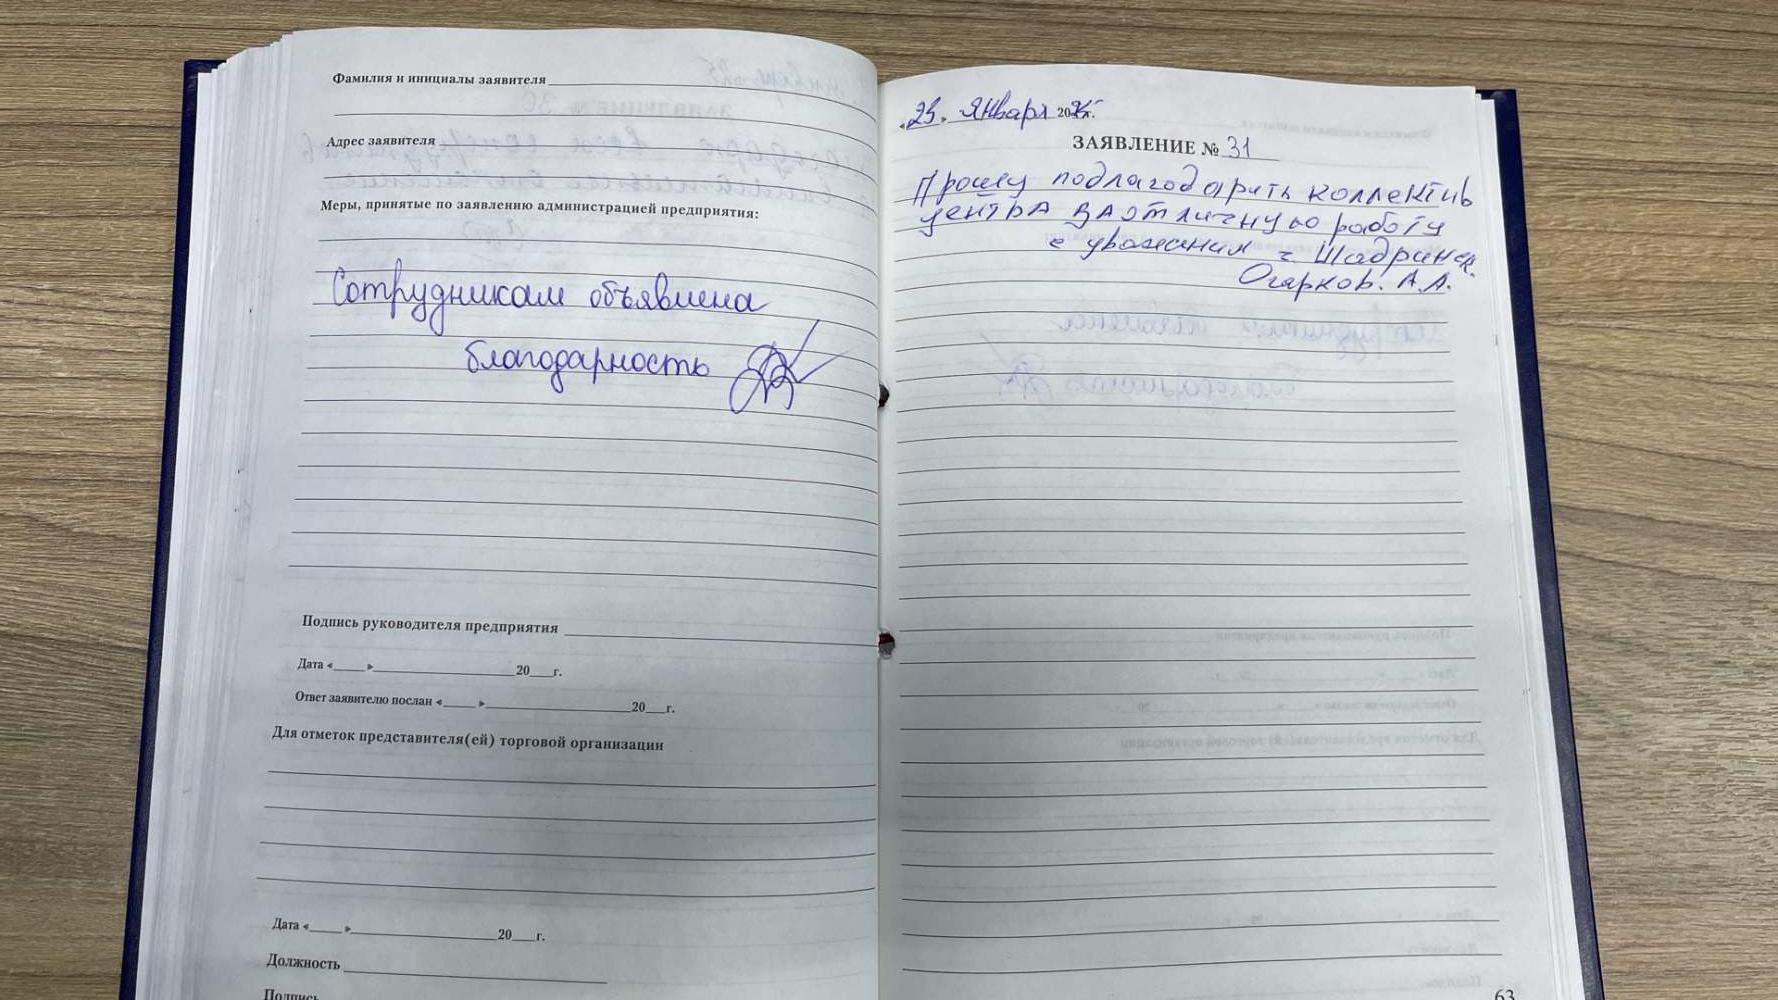 Фамилия и инициалы заявителя
Адрес заявителя
Меры, принятые по заявлению администрацией предприятия:
Сотрудникам объявлена
благодарность
Подпись руководителя предприятия
Дата «____»____________20___г.
Ответ заявителю послан «____»____________20___г.
Для отметок представителя(ей) торговой организации
Дата «____»____________20___г.
Должность
Подпись
«23» января 2025г.
ЗАЯВЛЕНИЕ № 31
Прошу подлагодарить коллектив
центра за отличную работу
с уважением г Шадринск.
Огарков. А.А.
63